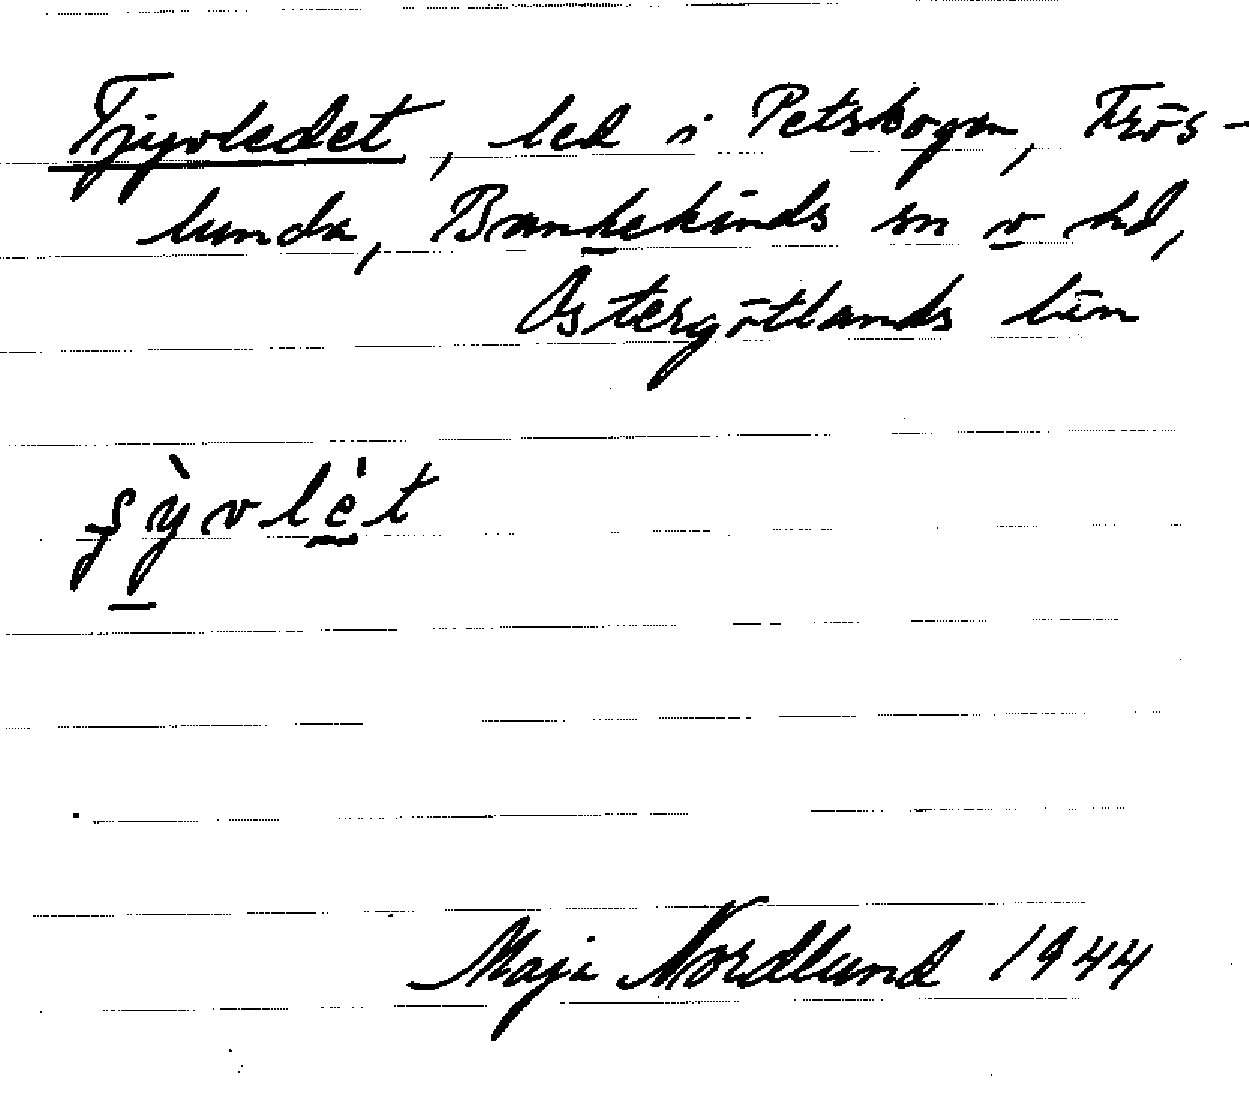 Tjyvledet, led i Petskogen, Trös-
lunda, Bankekinds sn o hd,
Östergötlands län
Maja Nordlund 1944